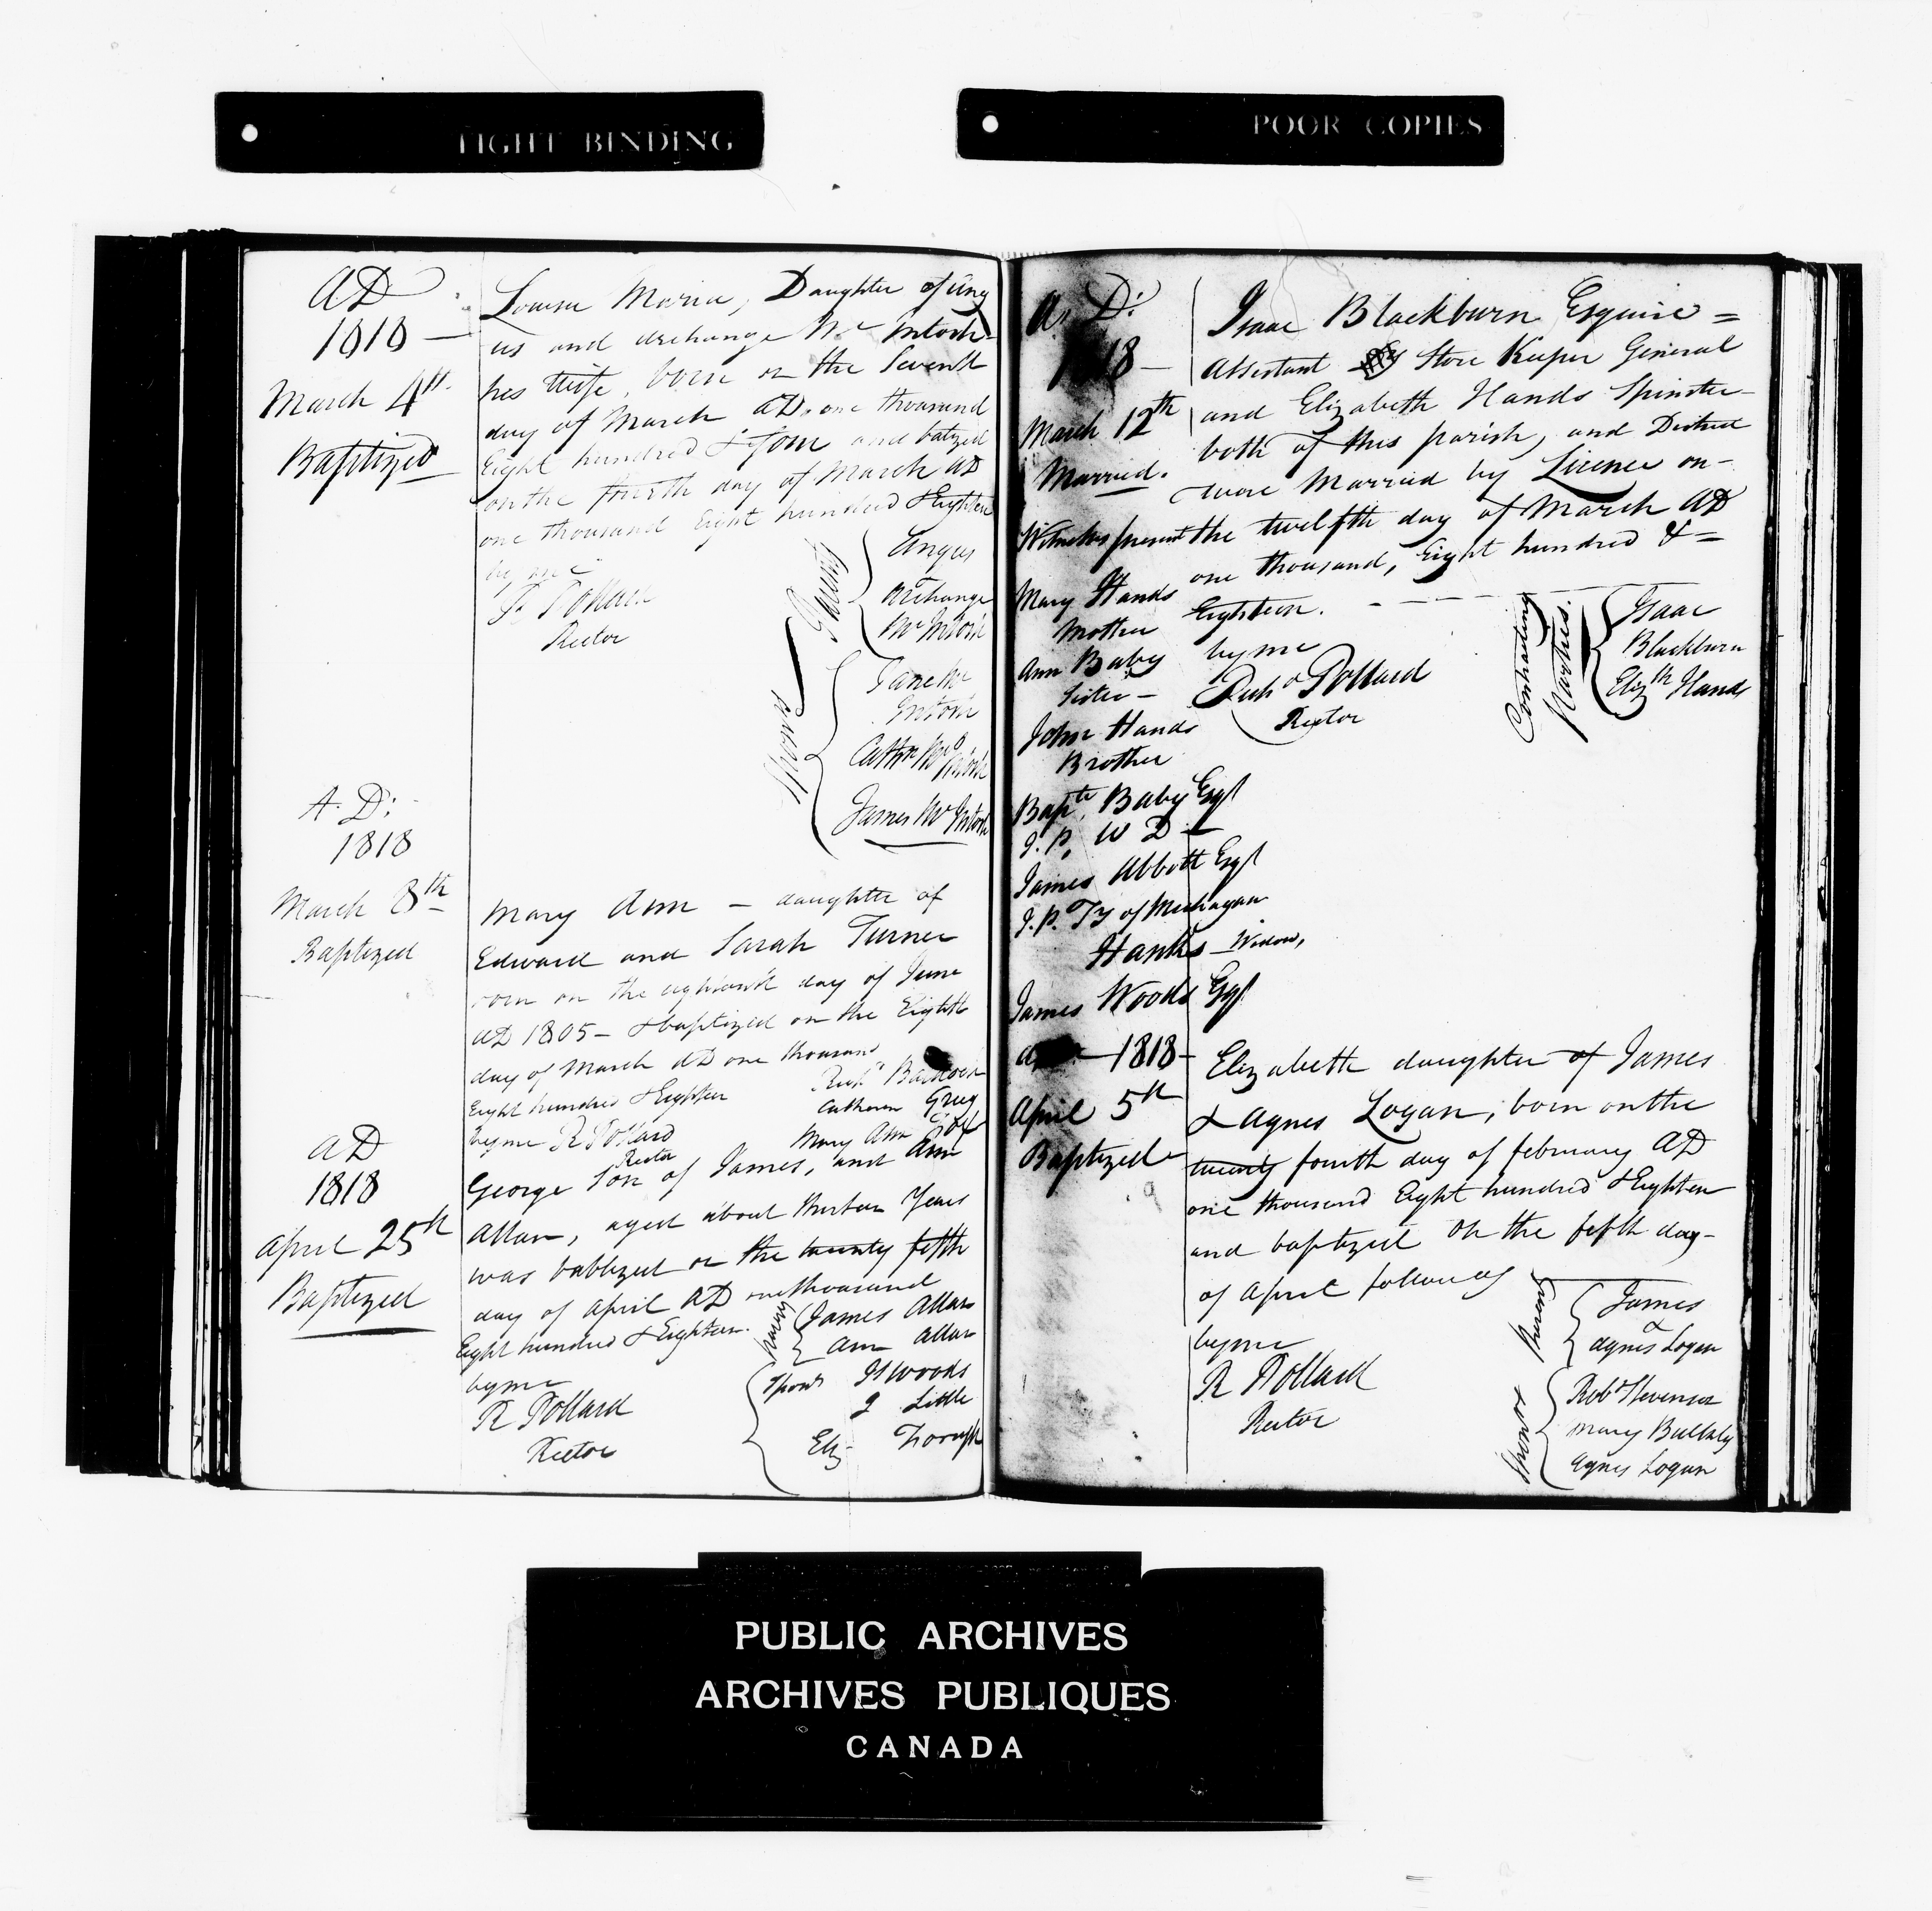 TIGHT BINDING
POOR COPIES
AD
1818 —
March 4th
Baptized
Louisa Maria, Daughter of Ang
us and Archange Mc Intosh
his Wife, born on the Seventh
day of March AD. one thousand
Eight hundred & four and batized
on the fourth day of March AD
one thousand Eight hundred & Eighteen
by me
R Pollard
Rector
Parents
Angus
Archange
Mc Intosh
Sponsors
Jane Mc
Intosh
Cathn Mc Intosh
James Mc Intosh
A. D:
1818
March 8th
Baptized
Mary Ann — daughter of
Edward and Sarah Turner
born on the eighteenth day of June
AD 1805 — & baptized on the Eighth
day of March AD one thousand
Eight hundred & Eighteen
by me R Pollard
Rector
Richd
Catharine Greg
Mary Ann
AD
1818
April 25th
Baptized
George Son of James, and Ann
Allan, aged about thirteen Years
was babtized on the twenty fifth
day of April AD one thousand
Eight hundred & Eighteen.
by me
R Pollard
Rector
Parents
James Allan
Ann Allan
Spons
Js Woods
J Little
Eliz
A. D:
1818 —
March 12th
Married.
Isaac Blackburn Esquire =
Assistant Store Keeper General
and Elizabeth Hands Spinster —
both of this parish, and District
were Married by Licence on —
the twelfth day of March AD
one thousand, Eight hundred & =
Eighteen.
by me
Richd Pollard
Rector
Contracting
Parties.
Isaac
Blackburn
Elizth Hands
Witnesses present
Mary Hands
Mother
Ann Baby
Sister —
John Hands
Brother
Bapte Baby Esqr
J. P. W D —
James Abbott Esqr
J. P. Ty of Michagan
Hanks — Widow,
James Woods Esqr
1818 —
April 5th
Baptized
Elizabeth daughter of James
& Agnes Logan, born on the
twenty fourth day of february AD
one thousand Eight hundred & Eighteen
and baptized on the fifth day —
of April following
by me
R Pollard
Rector
Parents
James
&
Agnes Logan
Sponsors
Robt Stevenson
Mary Bulkly
Agnes Logan
PUBLIC ARCHIVES
ARCHIVES PUBLIQUES
CANADA